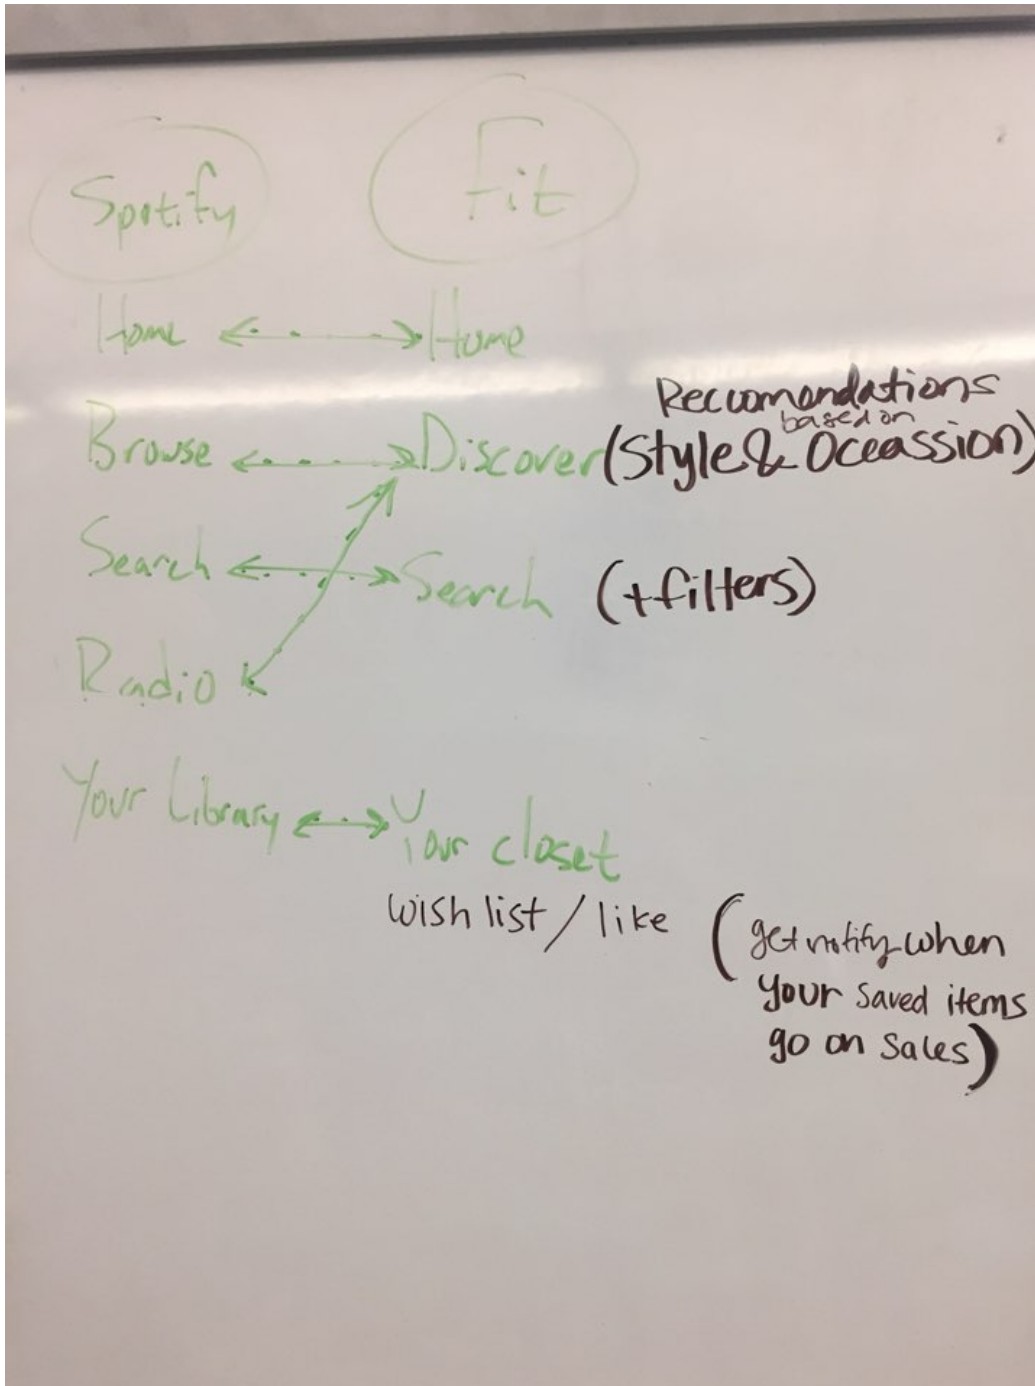 Spotify Fit
Home Home
Reccomendations
based on
Browse Discover (Style & Oceassion)
Search Search (+filters)
Radio
Your Library Your closet
wish list / like (get notify when
your saved items
go on sales)